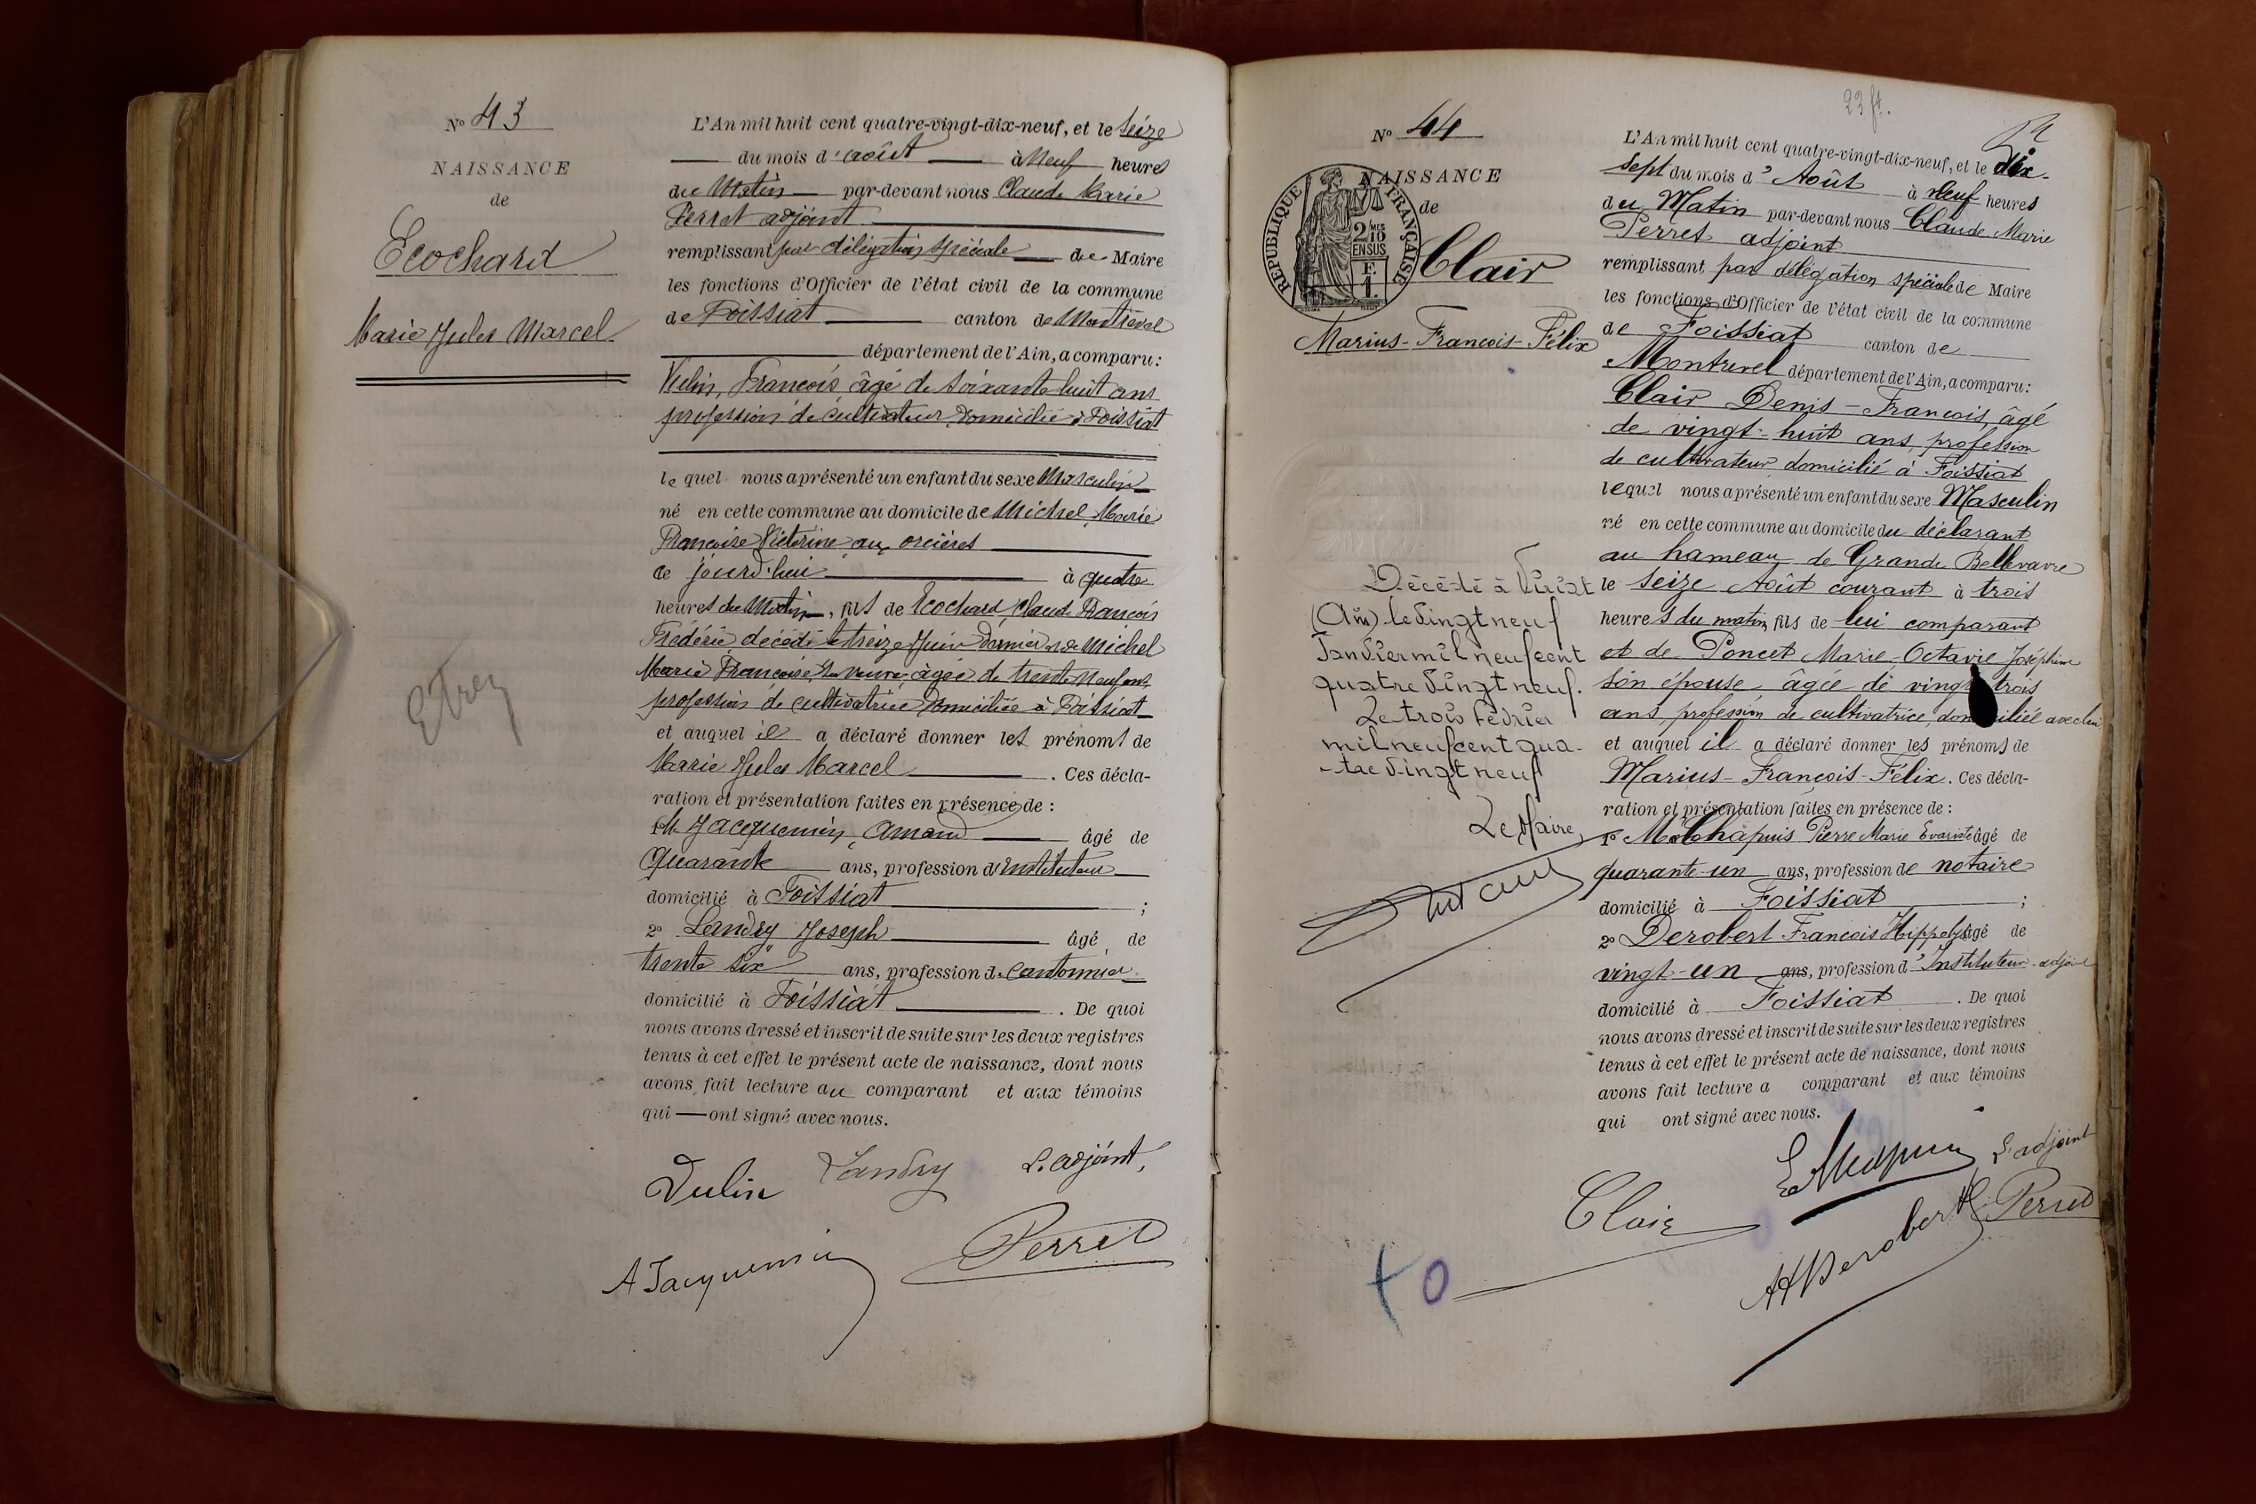 N° 43
NAISSANCE
de
Ecochard
Marie Jules Marcel
Etrez
L'An mil huit cent quatre-vingt-dix-neuf, et le seize
du mois d'août à Neuf heures
du Matin par-devant nous Claude Marie
Perret adjoint
remplissant par délégation spéciale de Maire
les fonctions d'Officier de l'état civil de la commune
de Foissiat canton de Montrevel
département de l'Ain, a comparu:
François, âgé de soixante huit ans
profession de cultivateur domicilié à Foissiat
le quel nous a présenté un enfant du sexe Masculin
né en cette commune au domicile de Michel Marie
Françoise Victorine aux orcières
ce jourd'hui à quatre
heures du Matin, fils de Ecochard Claude François
Frédéric décédé le treize Juin dernier et de Michel
Marie Françoise Vve veuve âgée de trente neuf ans
profession de cultivatrice domiciliée à Foissiat
et auquel il a déclaré donner les prénoms de
Marie Jules Marcel. Ces décla-
ration et présentation faites en présence de :
M. Jacquemin, Amand âgé de
Quarante ans, profession d'Instituteur
domicilié à Foissiat ;
2° Landry Joseph âgé de
trente six ans, profession de Cantonnier
domicilié à Foissiat. De quoi
nous avons dressé et inscrit de suite sur les deux registres
tenus à cet effet le présent acte de naissance, dont nous
avons fait lecture au comparant et aux témoins
qui ont signé avec nous.
Vulin Landry L'adjoint,
A Jacquemin Perret
23 ft.
N° 44
NAISSANCE
de
REPUBLIQUE FRANÇAISE
2/10 MES
EN SUS
F.
1.
Clair
Marius-François-Félix
Décédé à Viriat
(Ain) le vingt neuf
Janvier mil neuf cent
quatre vingt neuf.
Le trois février
mil neuf cent qua-
-tre vingt neuf
Le Maire,
L'An mil huit cent quatre-vingt-dix-neuf, et le dix-
sept du mois d'Août à Neuf heures
du Matin par-devant nous Claude Marie
Perret adjoint
remplissant par délégation spéciale de Maire
les fonctions d'Officier de l'état civil de la commune
de Foissiat canton de
Montrevel département de l'Ain, a comparu:
Clair Denis-François, âgé
de vingt-huit ans, profession
de cultivateur domicilié à Foissiat
lequel nous a présenté un enfant du sexe Masculin
né en cette commune au domicile du déclarant
au hameau de Grande Bellevavre
le seize Août courant à trois
heures du matin, fils de lui comparant
et de Poncet Marie-Octavie Joséphine
son épouse, âgée de vingt trois
ans, profession de cultivatrice, domiciliée avec lui
et auquel il a déclaré donner les prénoms de
Marius-François-Félix. Ces décla-
ration et présentation faites en présence de :
1° Me Chapuis Pierre Marie Evariste âgé de
quarante-un ans, profession de notaire
domicilié à Foissiat ;
2° Derobert François Hippolyte âgé de
vingt-un ans, profession d'Instituteur-adjoint
domicilié à Foissiat. De quoi
nous avons dressé et inscrit de suite sur les deux registres
tenus à cet effet le présent acte de naissance, dont nous
avons fait lecture a comparant et aux témoins
qui ont signé avec nous.
L'adjoint
Clair
Perret
Derobert